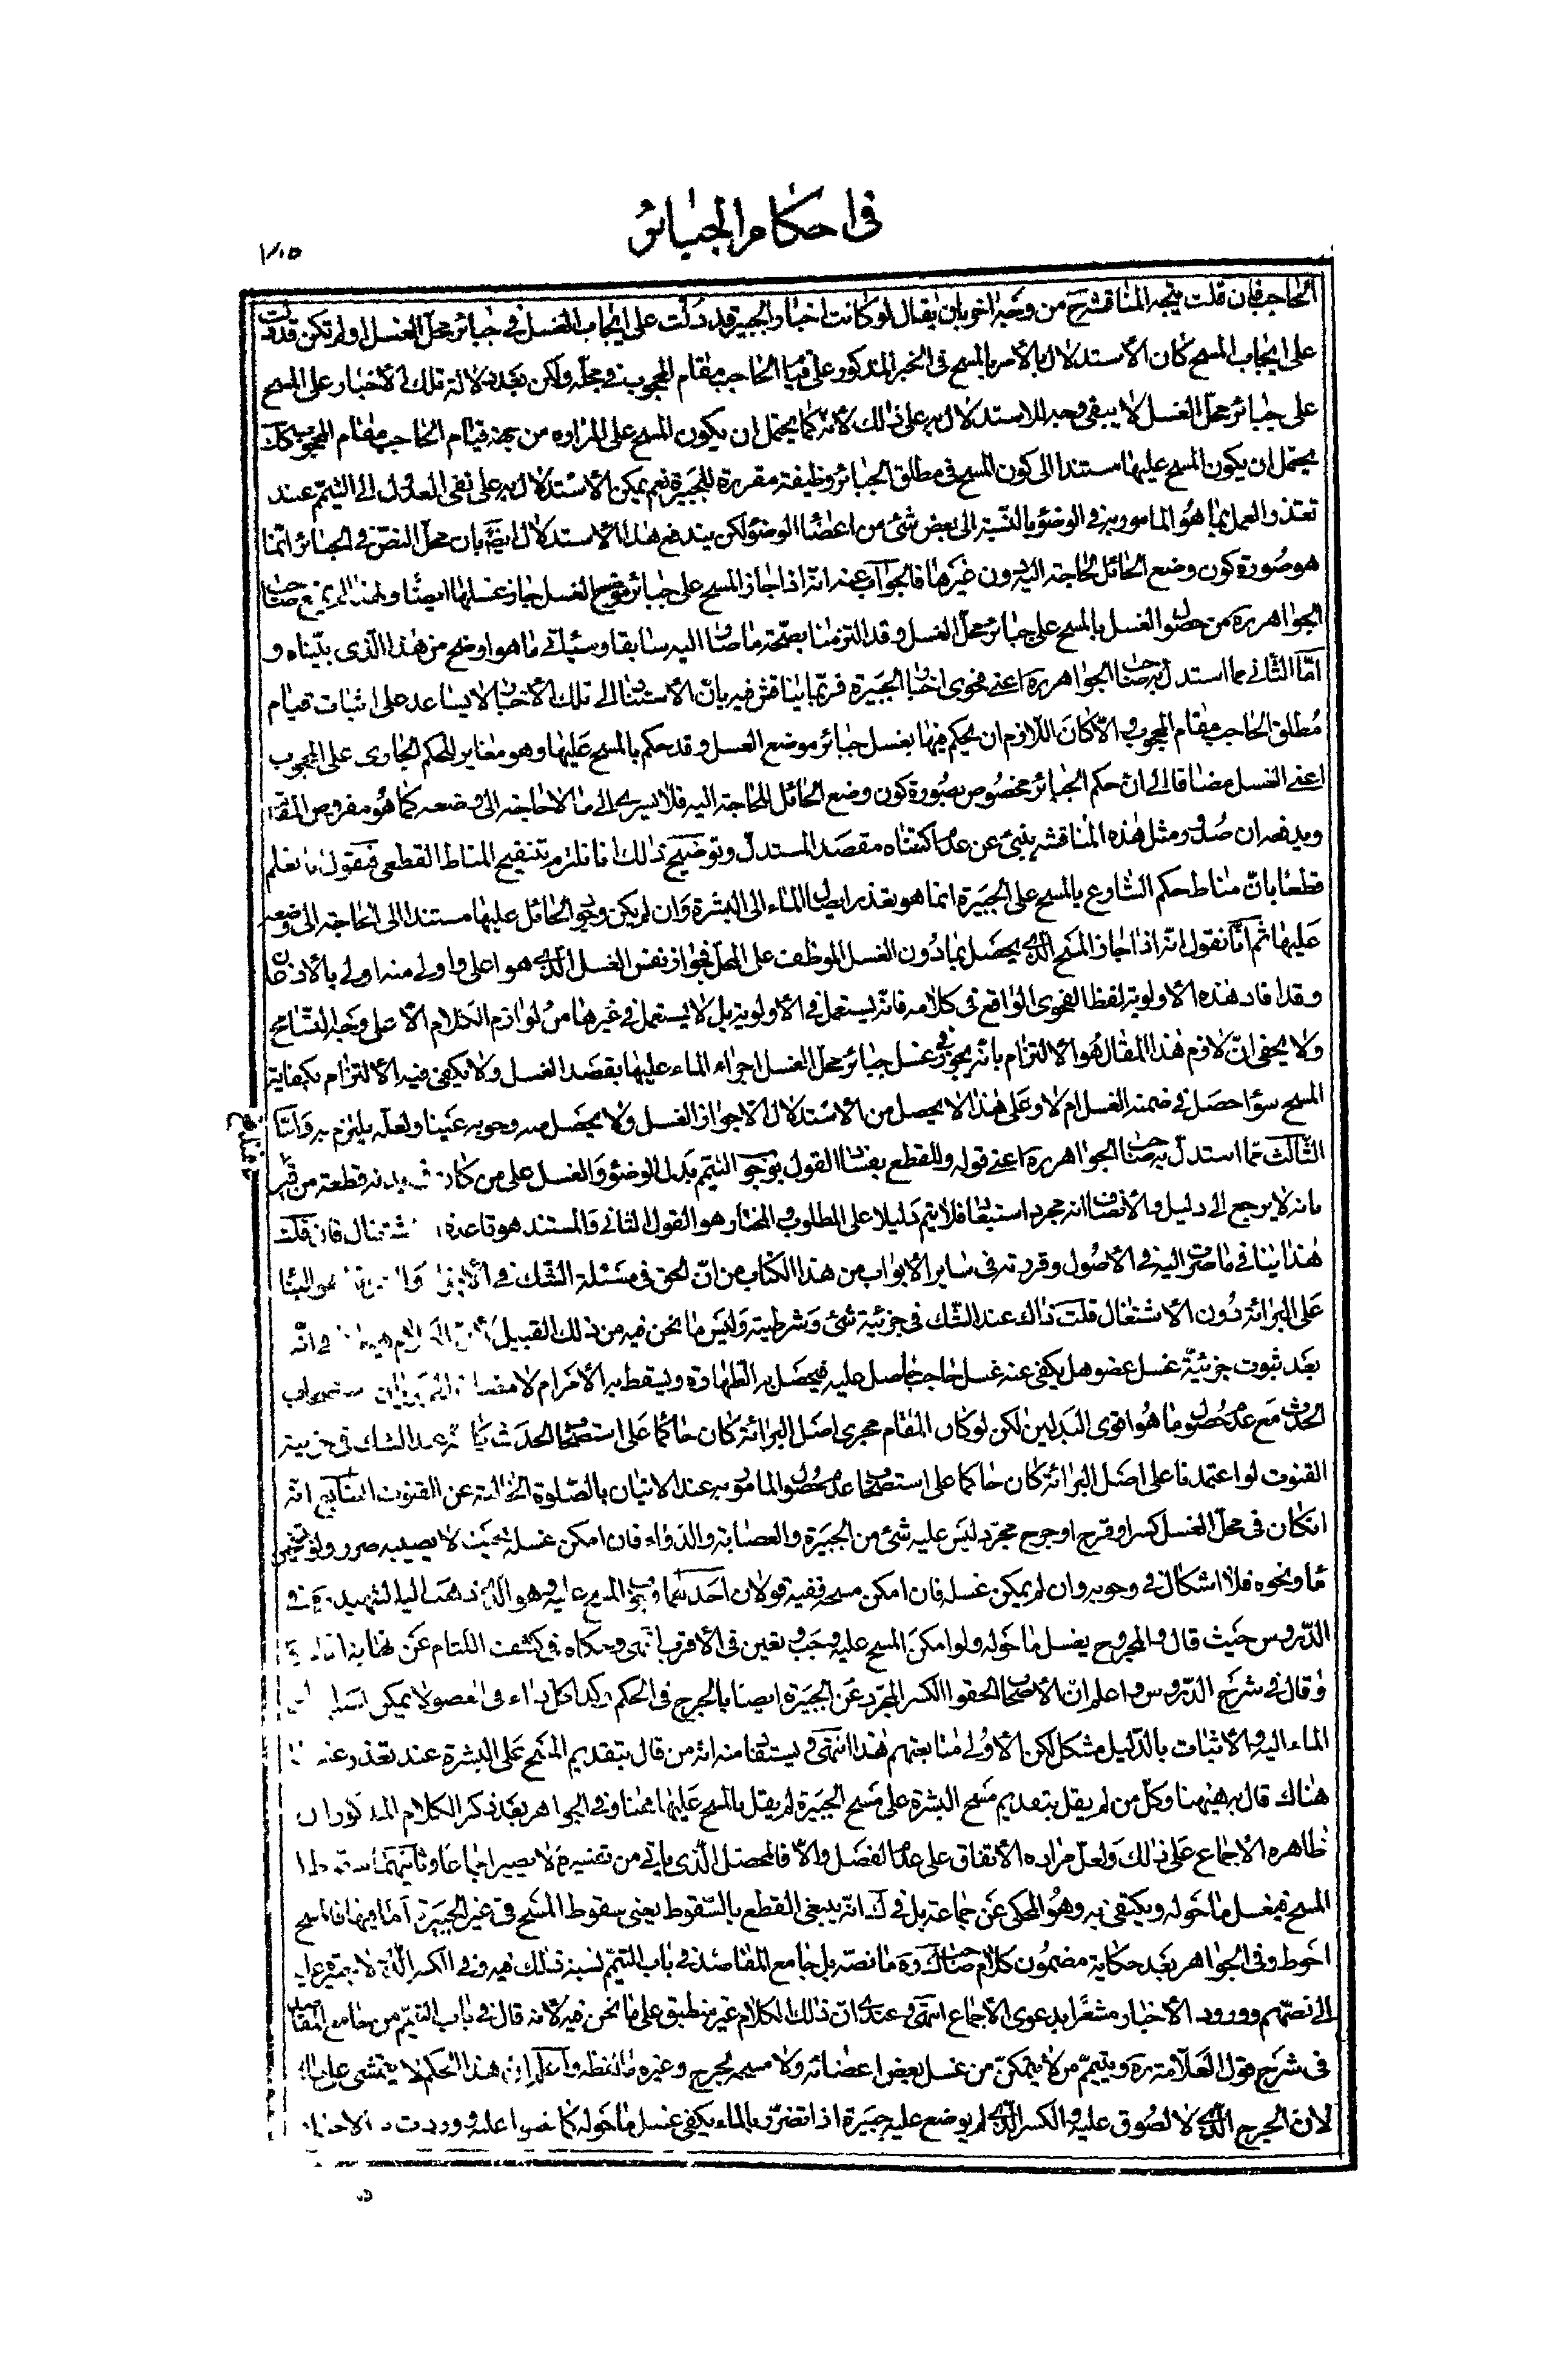 في احكام الجبائر
الحاجب فان قلت يتجه المناقشة ح من وجه اخر بان يقال لو كانت اخبار الجبيرة قد دلت على ايجاب الغسل في جبائر محل الغسل او لم تكن قد دلت
على ايجاب المسح كان الأستدلال بالأمر بالمسح في الخبر المذكور على قيام الحاجب مقام المحجوب في محله ولكن بعد دلالة تلك الأخبار على المسح
على جبائر محل الغسل لا يبقى وجه للاستدلال به على ذلك لأنه كما يحتمل ان يكون المسح على المرارة من جهة قيام الحاجب مقام المحجوب كك
يحتمل ان يكون المسح عليها مستندا الى كون المسح في مطلق الجبائر وظيفة مقررة للجبيرة نعم يمكن الأستدلال به على نفى العدول الى التيمم عند
تعذر العمل بما هو المامور به في الوضوء بالنسبة الى بعض شئ من اعضاء الوضوء لكن يندفع هذا الأستدلال ايضا بان محل النص في الجبائر انما
هو صورة كون وضع الحائل لحاجة اليه دون غيرها فالجواب عنه انه اذا جاز المسح على جبائر موضع الغسل جاز غسلها ايضا ولهذا لم يمنع صاحب
الجواهر ره من حصول الغسل بالمسح على جبائر محل الغسل وقد التزمنا بصحة ما صار اليه سابقا وسيأتي ما هو اوضح من هذا الذى بيناه و
اما الثاني مما استدل به صاحب الجواهر ره اعني فحوى اخبار الجبيرة فربما يناقش فيه بان الأستناد الى تلك الأخبار لا يساعد على اثبات قيام
مطلق الحاجب مقام المحجوب والا كان اللازم ان يحكم فيها بغسل جبائر موضع الغسل وقد حكم بالمسح عليها وهو مغاير للحكم الجارى على المحجوب
اعني الغسل مضافا الى ان حكم الجبائر مخصوص بصورة كون وضع الحائل للحاجة اليه فلا يسرى الى ما لا حاجة الى وضعه كما هو مفروض المقام
ويدفعه ان صدور مثل هذه المناقشة ينبئ عن عدم اكتناه مقصد المستدل وتوضيح ذلك انا نلتزم بتنقيح المناط القطعى فنقول انا نعلم
قطعا بان مناط حكم الشارع بالمسح على الجبيرة انما هو تعذر ايصال الماء الى البشرة وان لم يكن وجود الحائل عليها مستندا الى الحاجة الى وضعه
عليها ثم انا نقول انه اذا جاز المسح الذى يحصل بما دون الغسل الموظف على المحل فجواز نفس الغسل الذى هو اعلى واولى منه اولى بالأذعان
وقد افاد هذه الأولوية لفظ الفحوى الواقع في كلامه فانه يستعمل في الأولوية بل لا يستعمل في غيرها من لوازم الكلام الا على وجه التسامح
ولا يخفى ان لازم هذا المقال هو الألتزام بانه يجوز في غسل جبائر محل الغسل اجراء الماء عليها بقصد الغسل ولا يكفى فيه الألتزام بكفاية
المسح سواء حصل في ضمنه الغسل ام لا وعلى هذا لا يحصل من الأستدلال الا جواز الغسل ولا يحصل منه وجوبه عينا ولعله يلتزم به واما
الثالث مما استدل به صاحب الجواهر ره اعني قوله وللقطع بفساد القول بوجوب التيمم بدل الوضوء والغسل على من كان في بدنه قطعة من قير
بانه لا يرجع الى دليل والأنصاف انه مجرد استبعاد فلا يتم دليلا على المطلوب والمختار هو القول الثاني والمستند هو قاعدة الاشتغال فان قلت
هذا ينافي ما صرت اليه في الأصول وقررته في ساير الأبواب من هذا الكتاب من ان الحق في مسئلة الشك في هو البناء
على البرائة دون الأشتغال قلت ذلك عند الشك في جزئية شئ وشرطيته وليس ما نحن فيه من ذلك القبيل في انه
بعد ثبوت جزئية غسل عضو هل يكفى عنه غسل حاجب حاصل عليه فيحصل به الطهارة ويسقط به الأمر ام لا استصحاب
الحدث مع عدم حصول ما هو اقوى البدلين لكن لو كان المقام مجرى اصل البرائة كان حاكما على استصحاب الحدث كما انه عند الشك في جزئية
القنوت لو اعتمدنا على اصل البرائة كان حاكما على استصحاب عدم حصول المامور به عند الاتيان بالصلوة الخالية عن القنوت السابع انه
ان كان في محل الغسل كسر او قرح او جرح مجرد ليس عليه شئ من الجبيرة والعصابة والدواء فان امكن غسله بحيث لا يصيبه ضرر ولو بتسخين
ماء ونحوه فلا اشكال في وجوبه وان لم يمكن غسله فان امكن مسحه ففيه قولان احدهما وجوب المسح عليه وهو الذى ذهب اليه الشهيد ره في
الدروس حيث قال والمجروح يغسل ما حوله ولو امكن المسح عليه وجب وتعين في الأقرب انتهى وحكاه في كشف اللثام عن نهاية
وقال في شرح الدروس واعلم ان الأصحاب الحقوا الكسر المجرد عن الجبيرة ايضا بالجرح في الحكم وكذا كل داء في العضو لا يمكن ايصال
الماء اليه والأثبات بالدليل مشكل لكن الأولى متابعتهم هذا انتهى ويستفاد منه انه من قال بتقديم المسح على البشرة عند تعذر
هناك قال به هيهنا وكل من لم يقل بتقديم مسح البشرة على مسح الجبيرة لم يقل بالمسح عليها هنا وفي الجواهر بعد ذكر الكلام المذكور ان
ظاهره الأجماع على ذلك ولعل مراده الأتفاق على عدم الفصل والا فالمحصل الذى ياتي من تفسيره لا يصير اجماعا وثانيهما سقوط
المسح فيغسل ما حوله ويكتفى به وهو المحكى عن جماعة بل في ك انه ينبغي القطع بالسقوط يعنى سقوط المسح في غير الجبيرة اما فيها فالمسح
احوط وفي الجواهر بعد حكاية مضمون كلام صاحب ك ره ما نصه بل جامع المقاصد في باب التيمم نسبة ذلك فيه وفي الكسر الذى لا جبيرة عليه
الى نصهم وورود الأخبار مشعرا بدعوى الأجماع انتهى وعندى ان ذلك الكلام غير منطبق على ما نحن فيه لأنه قال في باب التيمم من جامع المقاصد
في شرح قول العلامة ره ويتيمم من لا يتمكن من غسل بعض اعضائه ولا مسحه لجرح وغيره ما لفظه واعلم ان هذا الحكم لا يتمشى على
لان الجرح الذى لا لصوق عليه والكسر الذى لم يوضع عليه جبيرة اذا تضرر بالماء يكفى غسل ما حوله كما نصوا عليه ووردت به الاخبار